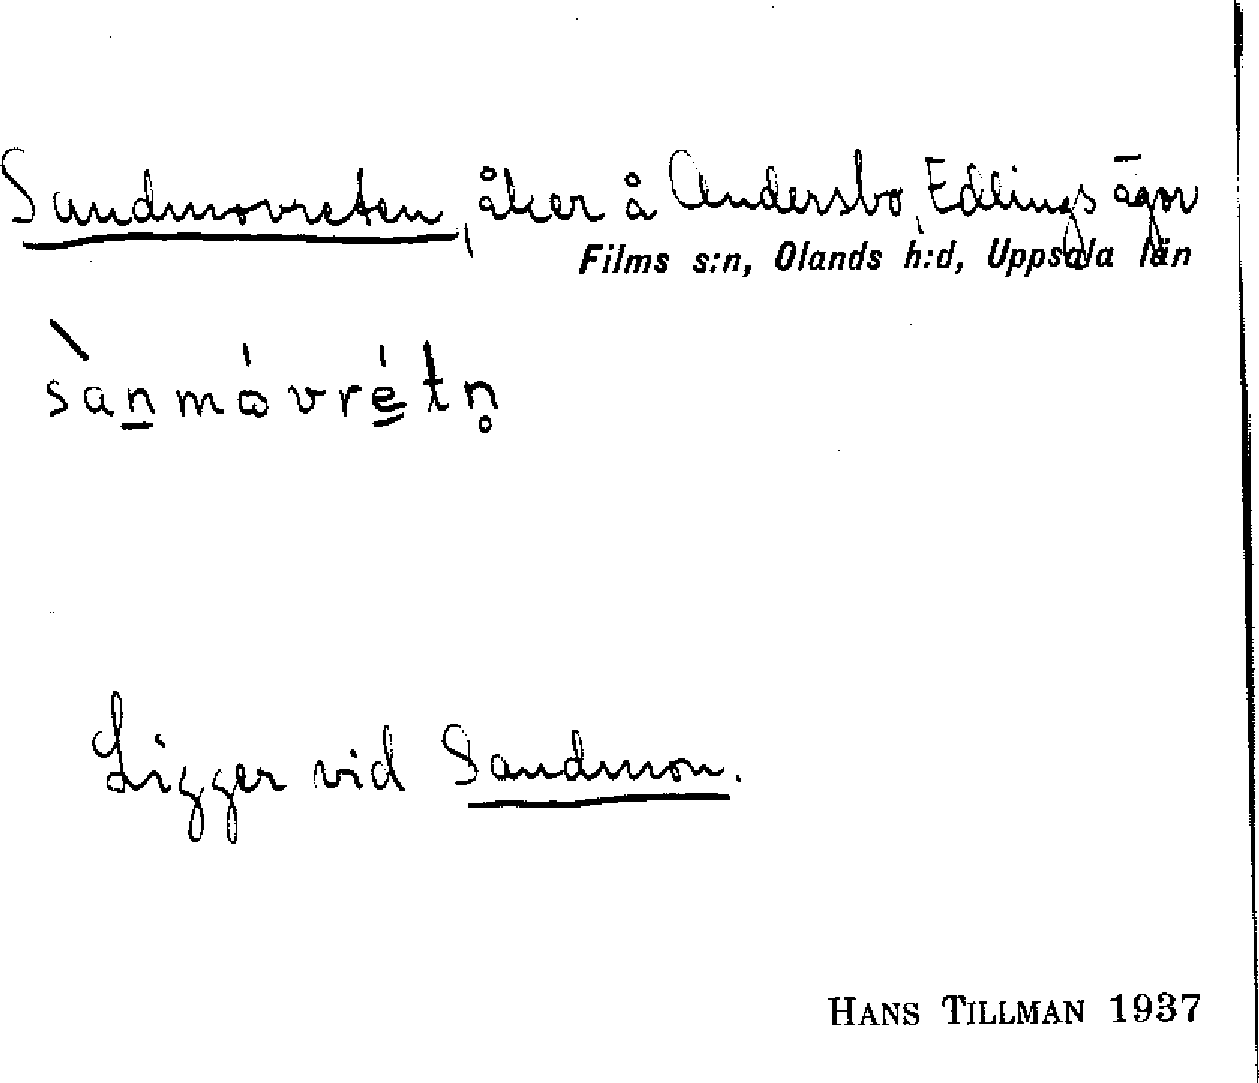 Sandmovreten, åker å Andersbo, Edlings ägor
Films s:n, Olands h:d, Uppsala län
sànmóvrétn̥
Ligger vid Sandmon.
HANS TILLMAN 1937